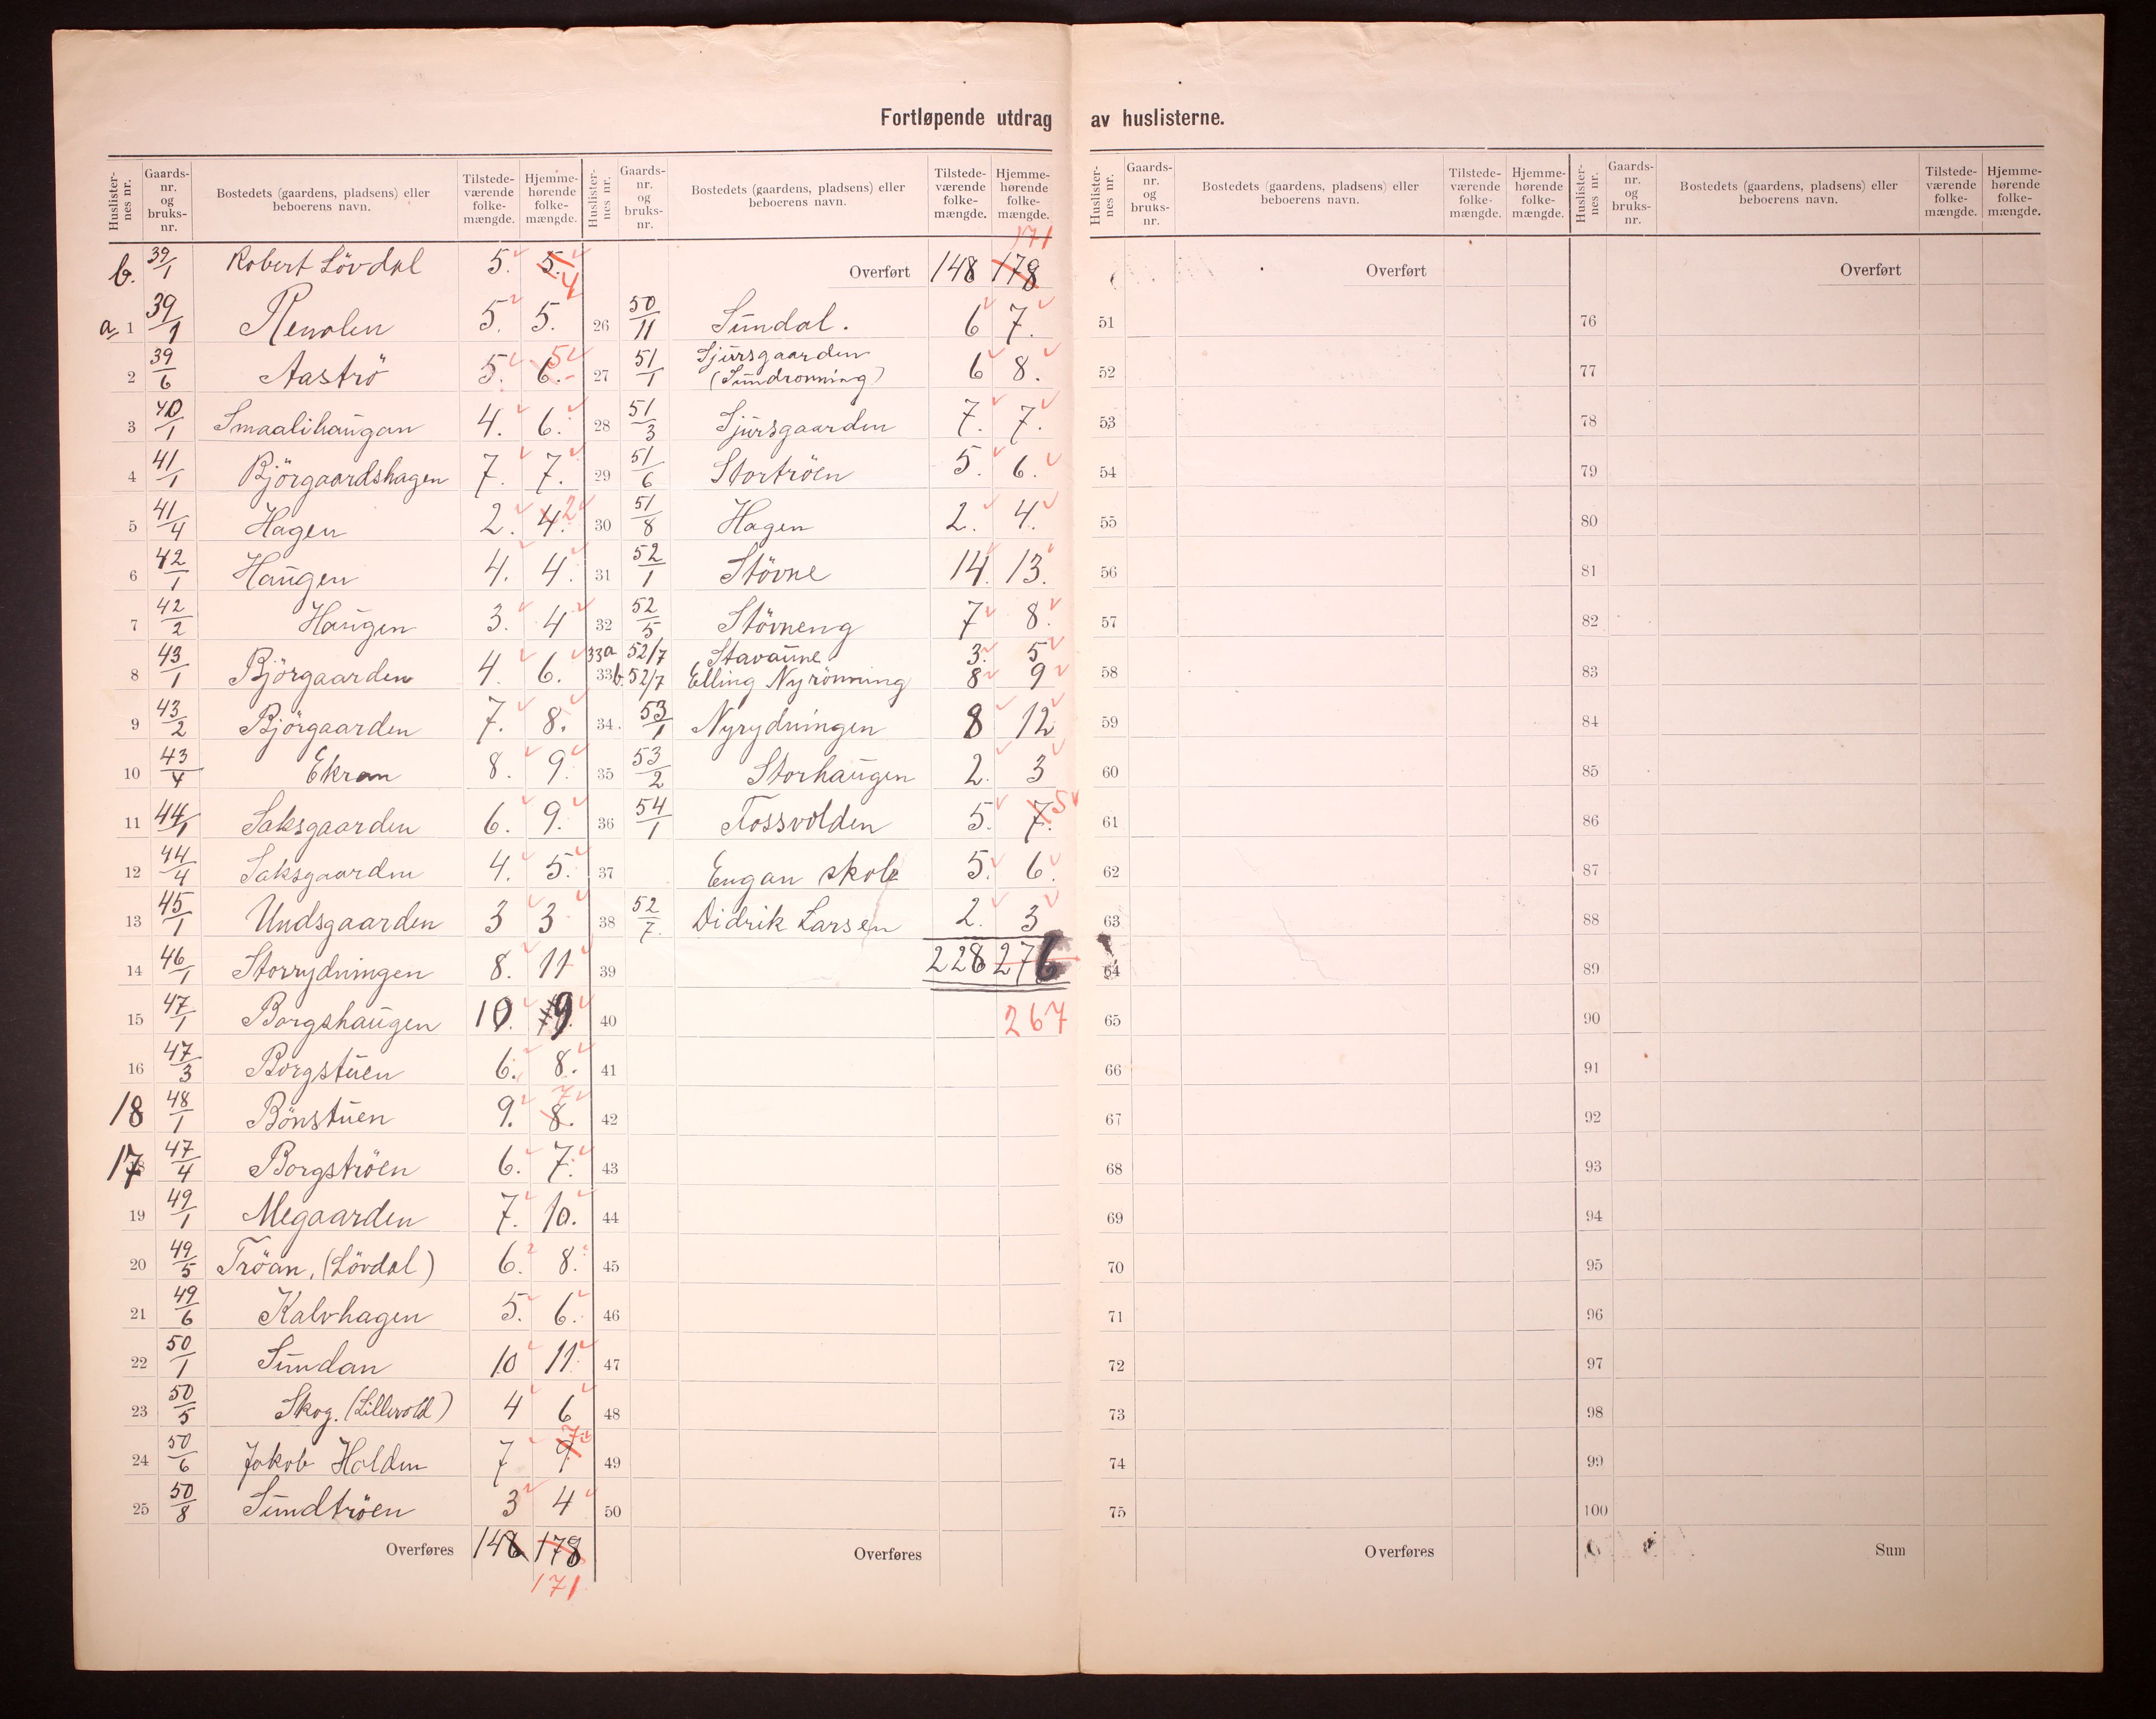 Fortløpende utdrag av huslisterne.
Huslister-nes nr. Gaards-nr. og bruks-nr. Bostedets (gaardens, pladsens) eller beboerens navn. Tilstede-værende folke-mængde. Hjemme-hørende folke-mængde.
b. 39/1 Robert Lövdal 5. 5. 4
a. 1 39/1 Renolen 5. 5.
2 39/6 Aaströ 5. 6. 5
3 40/1 Smaalihaugan 4. 6.
4 41/1 Bjørgaardshagen 7. 7.
5 41/4 Hagen 2. 4. 2
6 42/1 Haugen 4. 4.
7 42/2 Haugen 3. 4
8 43/1 Björgaarden 4. 6.
9 43/2 Björgaarden 7. 8.
10 43/4 Ekran 8. 9.
11 44/1 Saksgaarden 6. 9.
12 44/4 Saksgaarden 4. 5.
13 45/1 Undsgaarden 3 3
14 46/1 Storrydningen 8. 11
15 47/1 Borgshaugen 10. 9.
16 47/3 Borgstuen 6. 8.
18 48/1 Bönstuen 9. 8. 7
17 47/4 Borgströen 6. 7.
19 49/1 Megaarden 7. 10.
20 49/5 Tröan, (Lövdal) 6. 8.
21 49/6 Kalvhagen 5. 6.
22 50/1 Sundan 10 11
23 50/5 Skog. (Lillevold) 4 6
24 50/6 Jakob Holden 7 9 7
25 50/8 Sundtröen 3 4
Overføres 148 178
171
Huslister-nes nr. Gaards-nr. og bruks-nr. Bostedets (gaardens, pladsens) eller beboerens navn. Tilstede-værende folke-mængde. Hjemme-hørende folke-mængde.
171
Overført 148 178
26 50/11 Sundal. 6 7.
27 51/1 Sjursgaarden (Sundrønning) 6 8.
28 51/3 Sjursgaarden 7. 7.
29 51/6 Stortröen 5. 6.
30 51/8 Hagen 2. 4.
31 52/1 Stövne 14. 13.
32 52/5 Stövneng 7 8.
33a 52/7 Stavaune 3. 5
33b. 52/7 Elling Nyrönning 8 9
34. 53/1 Nyrydningen 8 12
35 53/2 Storhaugen 2. 3
36 54/1 Fossvolden 5. 7. 5
37 Engan skole 5. 6.
38 52/7. Didrik Larsen 2. 3
39 228 276
40 267
41
42
43
44
45
46
47
48
49
50
Overføres
Huslister-nes nr. Gaards-nr. og bruks-nr. Bostedets (gaardens, pladsens) eller beboerens navn. Tilstede-værende folke-mængde. Hjemme-hørende folke-mængde.
Overført
51
52
53
54
55
56
57
58
59
60
61
62
63
64
65
66
67
68
69
70
71
72
73
74
75
Overføres
Huslister-nes nr. Gaards-nr. og bruks-nr. Bostedets (gaardens, pladsens) eller beboerens navn. Tilstede-værende folke-mængde. Hjemme-hørende folke-mængde.
Overført
76
77
78
79
80
81
82
83
84
85
86
87
88
89
90
91
92
93
94
95
96
97
98
99
100
Sum